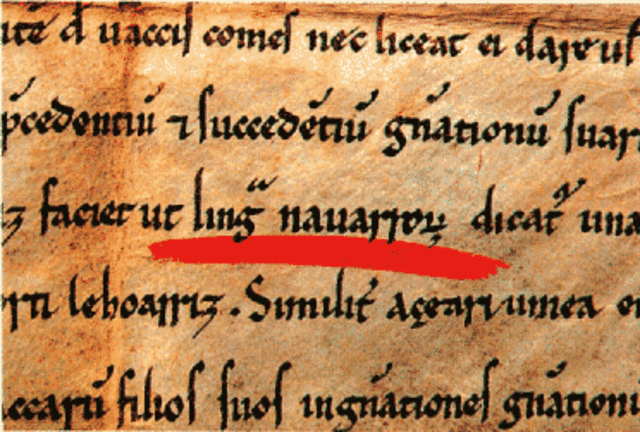 ite đ uaccis comes nec liceat ei dare ul
p̄cedentiū ⁊ succedētiū gn̄ationū suar
faciet ut lingᷓ nauarroꝝ dicat᷑ una
orti lehoarriz. Similit̄ açeari umea
accarū filios suos in gn̄ationes gn̄ation